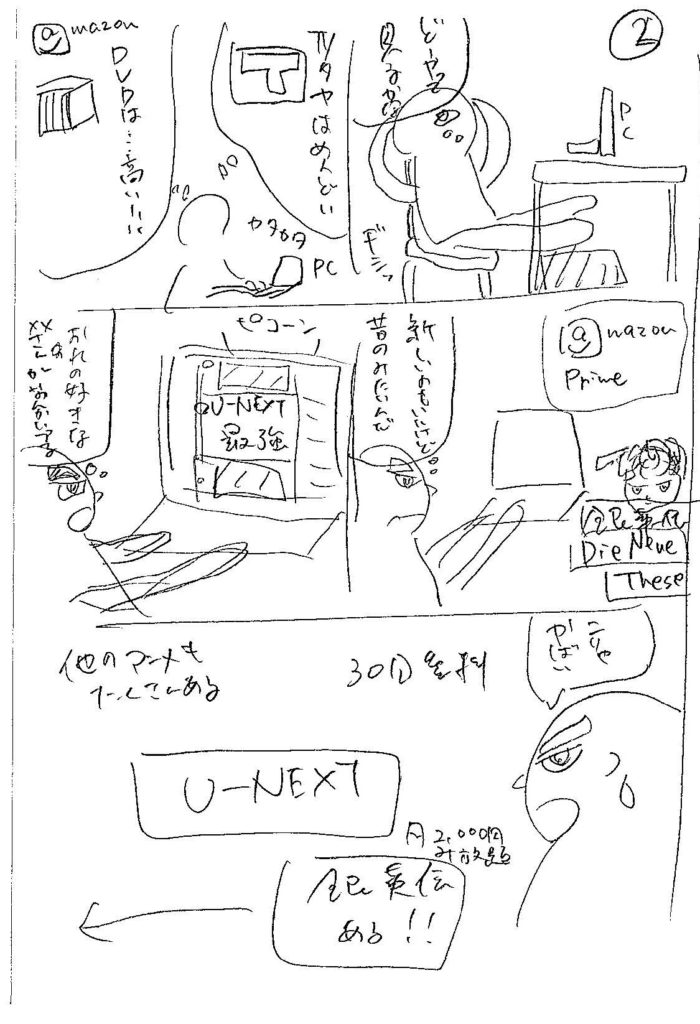 2
どーやって
見るか
PC
ギシッ
TVタヤはめんどい
カタカタ
PC
amazon
DVDは…高い…
amazon
Prime
銀英伝
Die Neue
These
新しいのもいいけど
昔のみたいんだ
ピコーン
U-NEXT
最強
おれの好きな
××さんが
こりゃ
やばい
30日無料
他のアニメも
たくさんある
U-NEXT
月2,000円
み放題
銀英伝
ある!!